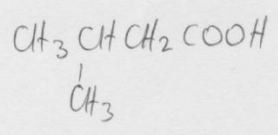 CH₃ CH CH₂ COOH
CH₃